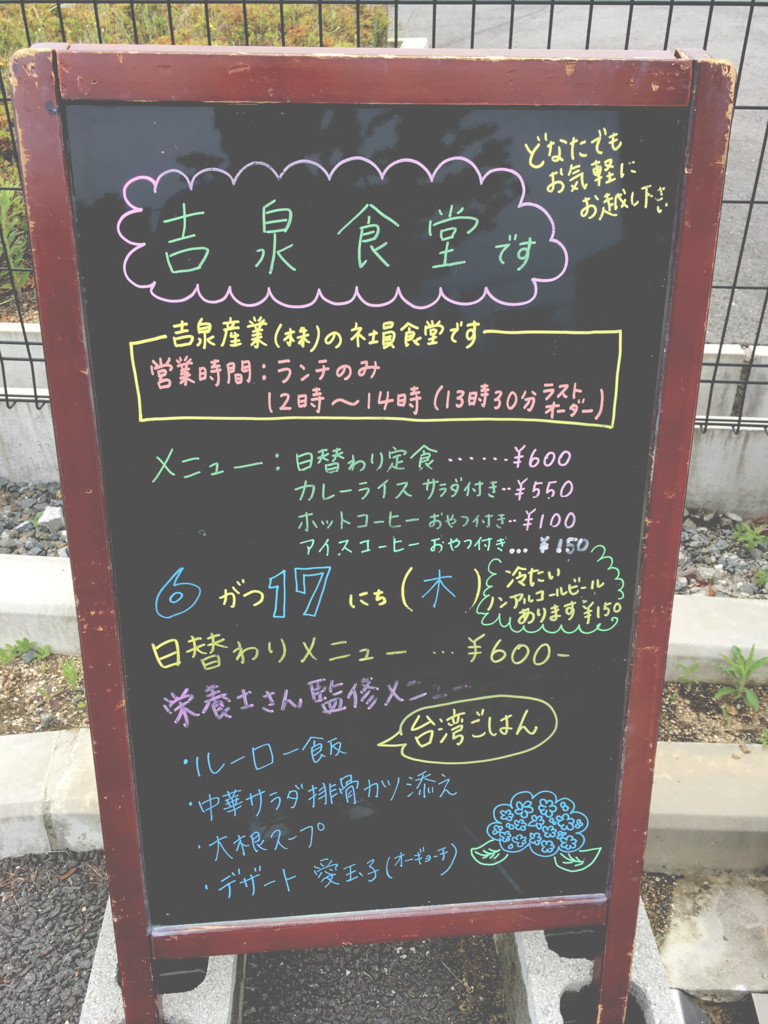 どなたでも
お気軽に
お越し下さい
吉泉食堂です
吉泉産業(株)の社員食堂です
営業時間：ランチのみ
12時〜14時(13時30分ラストオーダー)
メニュー：日替わり定食……¥600
カレーライス サラダ付き‥¥550
ホットコーヒー おやつ付き‥¥100
アイスコーヒー おやつ付き…¥150
6がつ17にち(木)
冷たい
ノンアルコールビール
あります¥150
日替わりメニュー…¥600-
栄養士さん監修メニュー
台湾ごはん
・ルーロー飯
・中華サラダ排骨カツ添え
・大根スープ
・デザート 愛玉子(オーギョーチ)